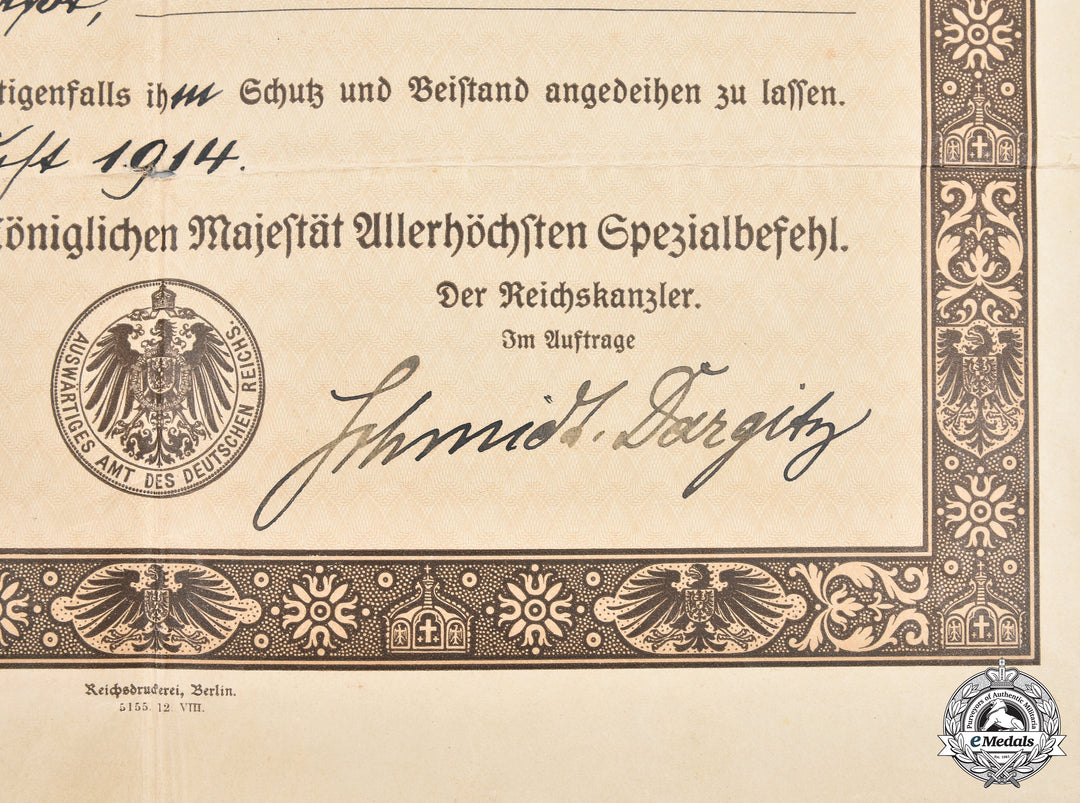 tigenfalls ihm Schutz und Beistand angedeihen zu lassen.
1914.
Königlichen Majestät Allerhöchsten Spezialbefehl.
Der Reichskanzler.
Im Auftrage
Schmidt. Dargitz
AUSWÄRTIGES AMT DES DEUTSCHEN REICHS.
Reichsdruckerei, Berlin.
5155. 12. VIII.
Purveyors of Authentic Militaria
eMedals